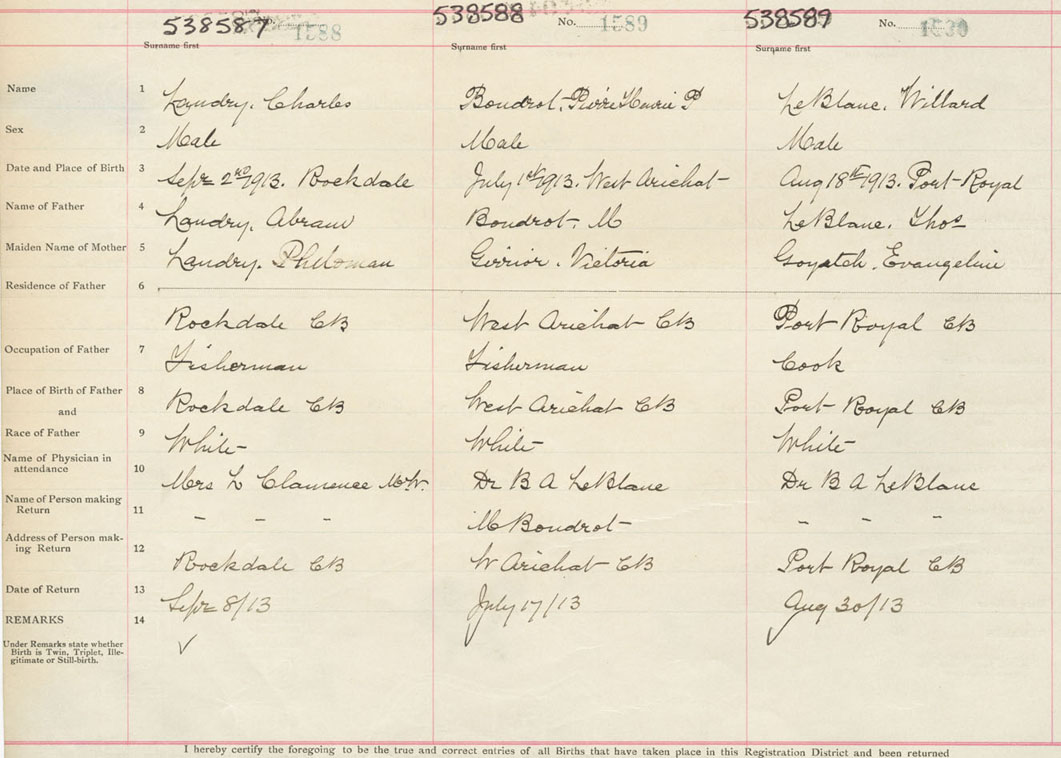 538587 1588 538588 No. 1589 538589 No. 1530
Surname first Surname first Surname first
Name 1 Landry, Charles Boudrot, Pierre Henrie P LeBlanc, Willard
Sex 2 Male Male Male
Date and Place of Birth 3 Sept 2nd 1913. Rockdale July 1st 1913. West Arichat Aug 18th 1913. Port Royal
Name of Father 4 Landry, Abram Boudrot, M LeBlanc, Thos
Maiden Name of Mother 5 Landry, Philoman Girrior, Victoria Goyatch, Evangeline
Residence of Father 6
Rockdale CB West Arichat CB Port Royal CB
Occupation of Father 7 Fisherman Fisherman Cook
Place of Birth of Father 8 Rockdale CB West Arichat CB Port Royal CB
and
Race of Father 9 White White White
Name of Physician in
attendance 10 Mrs L Clamence M.W. Dr B A LeBlanc Dr B A LeBlanc
Name of Person making
Return 11 - - - M Boudrot - - -
Address of Person mak-
ing Return 12 Rockdale CB W Arichat CB Port Royal CB
Date of Return 13 Sept 8/13 July 17/13 Aug 30/13
REMARKS 14
Under Remarks state whether
Birth is Twin, Triplet, Ille-
gitimate or Still-birth.
I hereby certify the foregoing to be the true and correct entries of all Births that have taken place in this Registration District and been returned